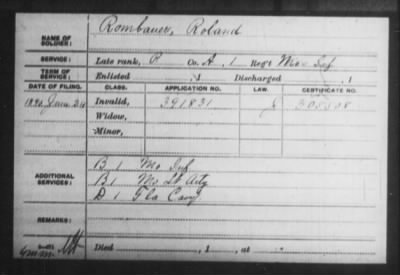 Rombauer, Roland
NAME OF SOLDIER:
SERVICE: Late rank, P Co. A, 1 Reg't Mo. Inf
TERM OF SERVICE: Enlisted , 1 Discharged , 1
DATE OF FILING. CLASS. APPLICATION NO. LAW. CERTIFICATE NO.
Invalid, 391831
Widow,
Minor,
ADDITIONAL SERVICES:
B 1 Mo Inf
B 1 Mo Lt Arty
D 1 Fla Cavy
REMARKS:
Died , 1 , at